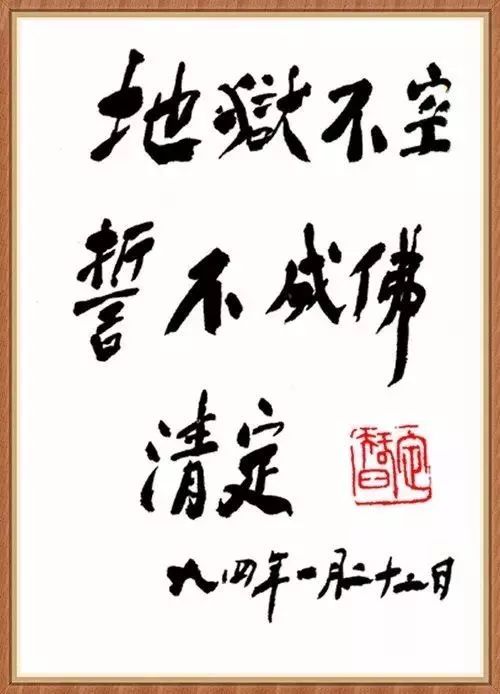 地獄不空
誓不成佛
清定
九四年一月二十二日